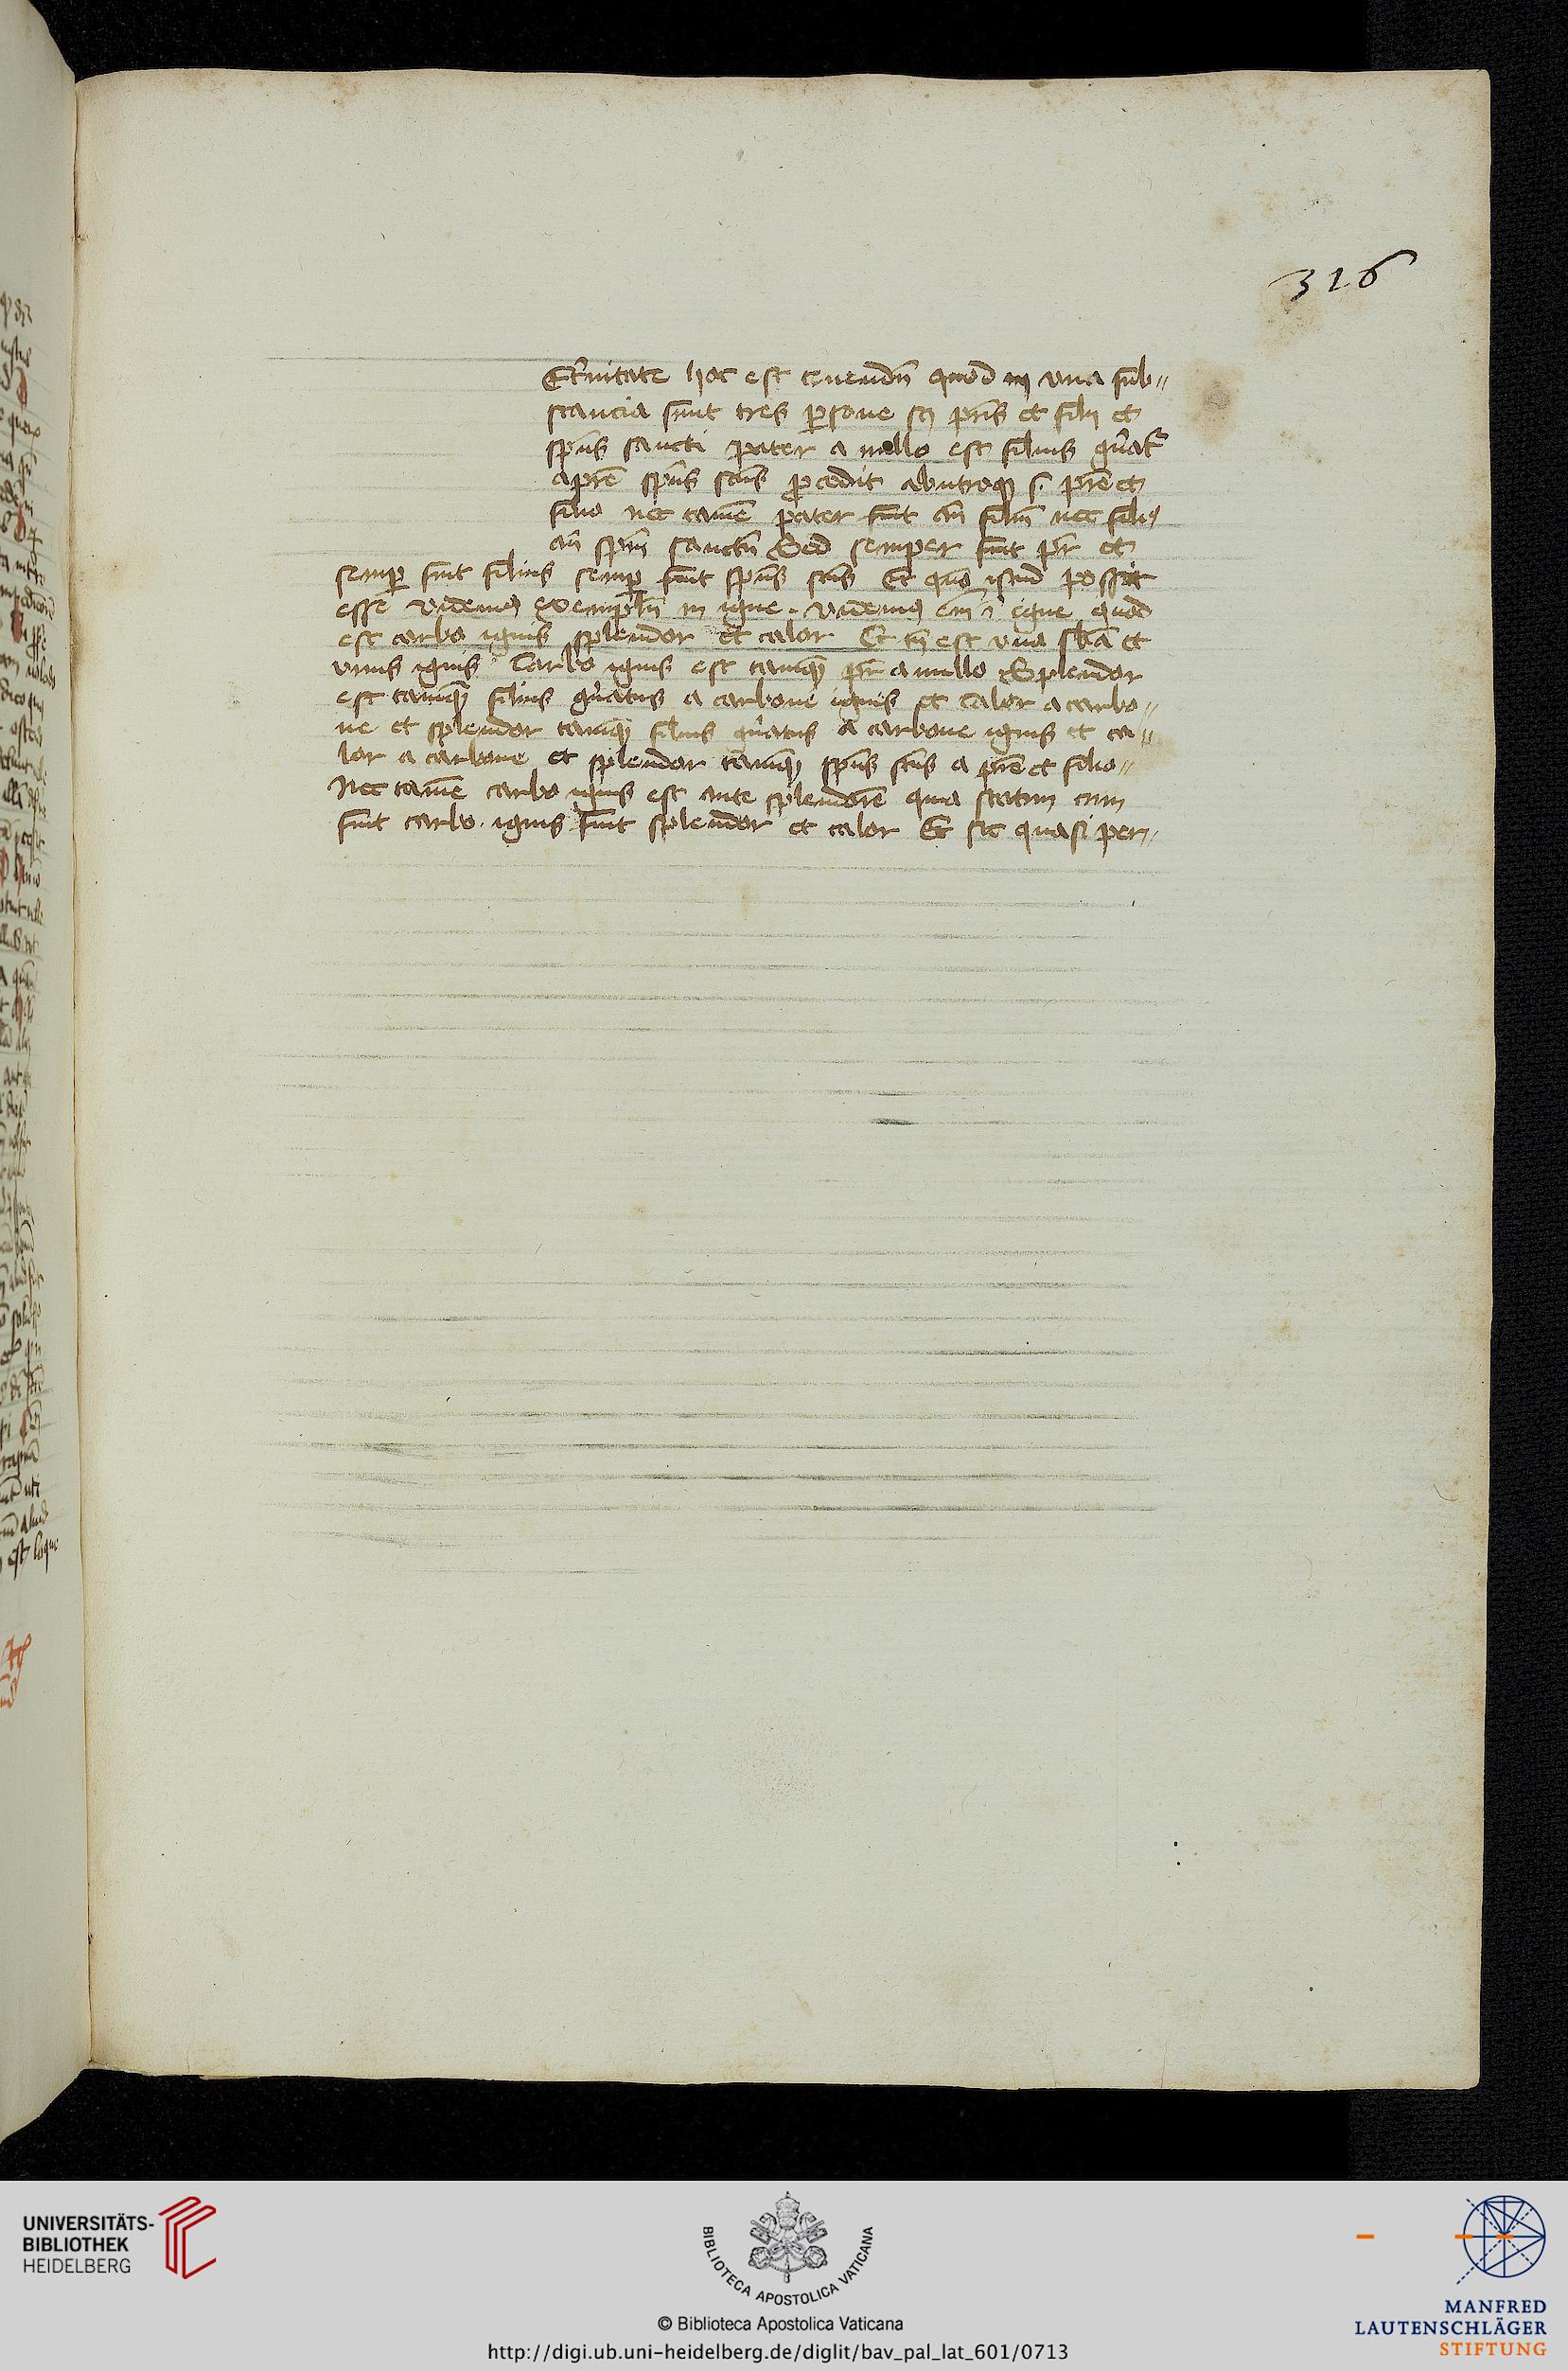 316
Et̓nitate hoc est tenendū quod in vna sub„
stancia sunt tres ꝑsone sꝫ pr̄is et filij et
spūs sancti pater a nullo est filius gn̄at᷑
a prē spūs scūs ꝓcedit ab utroqꝫ s. prē et
filio nec tamē pater fuit an̄ filiū nec filiꝰ
an̄ spm̄ sanctū Sed semper fuit pr̄ et
semꝑ fuit filius semꝑ fuit spūs scūs Et quō istud possit
esse videmꝰ exemplū in igne. videmꝰ em̄ ī igne quod
est carbo ignis splendor et calor Et tn̄ est vna sb̄a et
vnus ignis Carbo ignis est tamqꝫ pr̄ a nullo Splendor
est tamqꝫ filius gn̄atus a carbone ignis et Calor a carbo„
ne et splendor tamqꝫ filius gn̄atus a carbone ignis et ca„
lor a carbone et splendor tamqꝫ spūs scūs a prē et filio„
Nec tamē carbo ignis est ante splendorē quia statim cum
fuit carbo ignis fuit splendor et calor Et sic quasi per„
UNIVERSITÄTS-
BIBLIOTHEK
HEIDELBERG
BIBLIOTECA APOSTOLICA VATICANA
© Biblioteca Apostolica Vaticana
http://digi.ub.uni-heidelberg.de/diglit/bav_pal_lat_601/0713
MANFRED
LAUTENSCHLÄGER
STIFTUNG